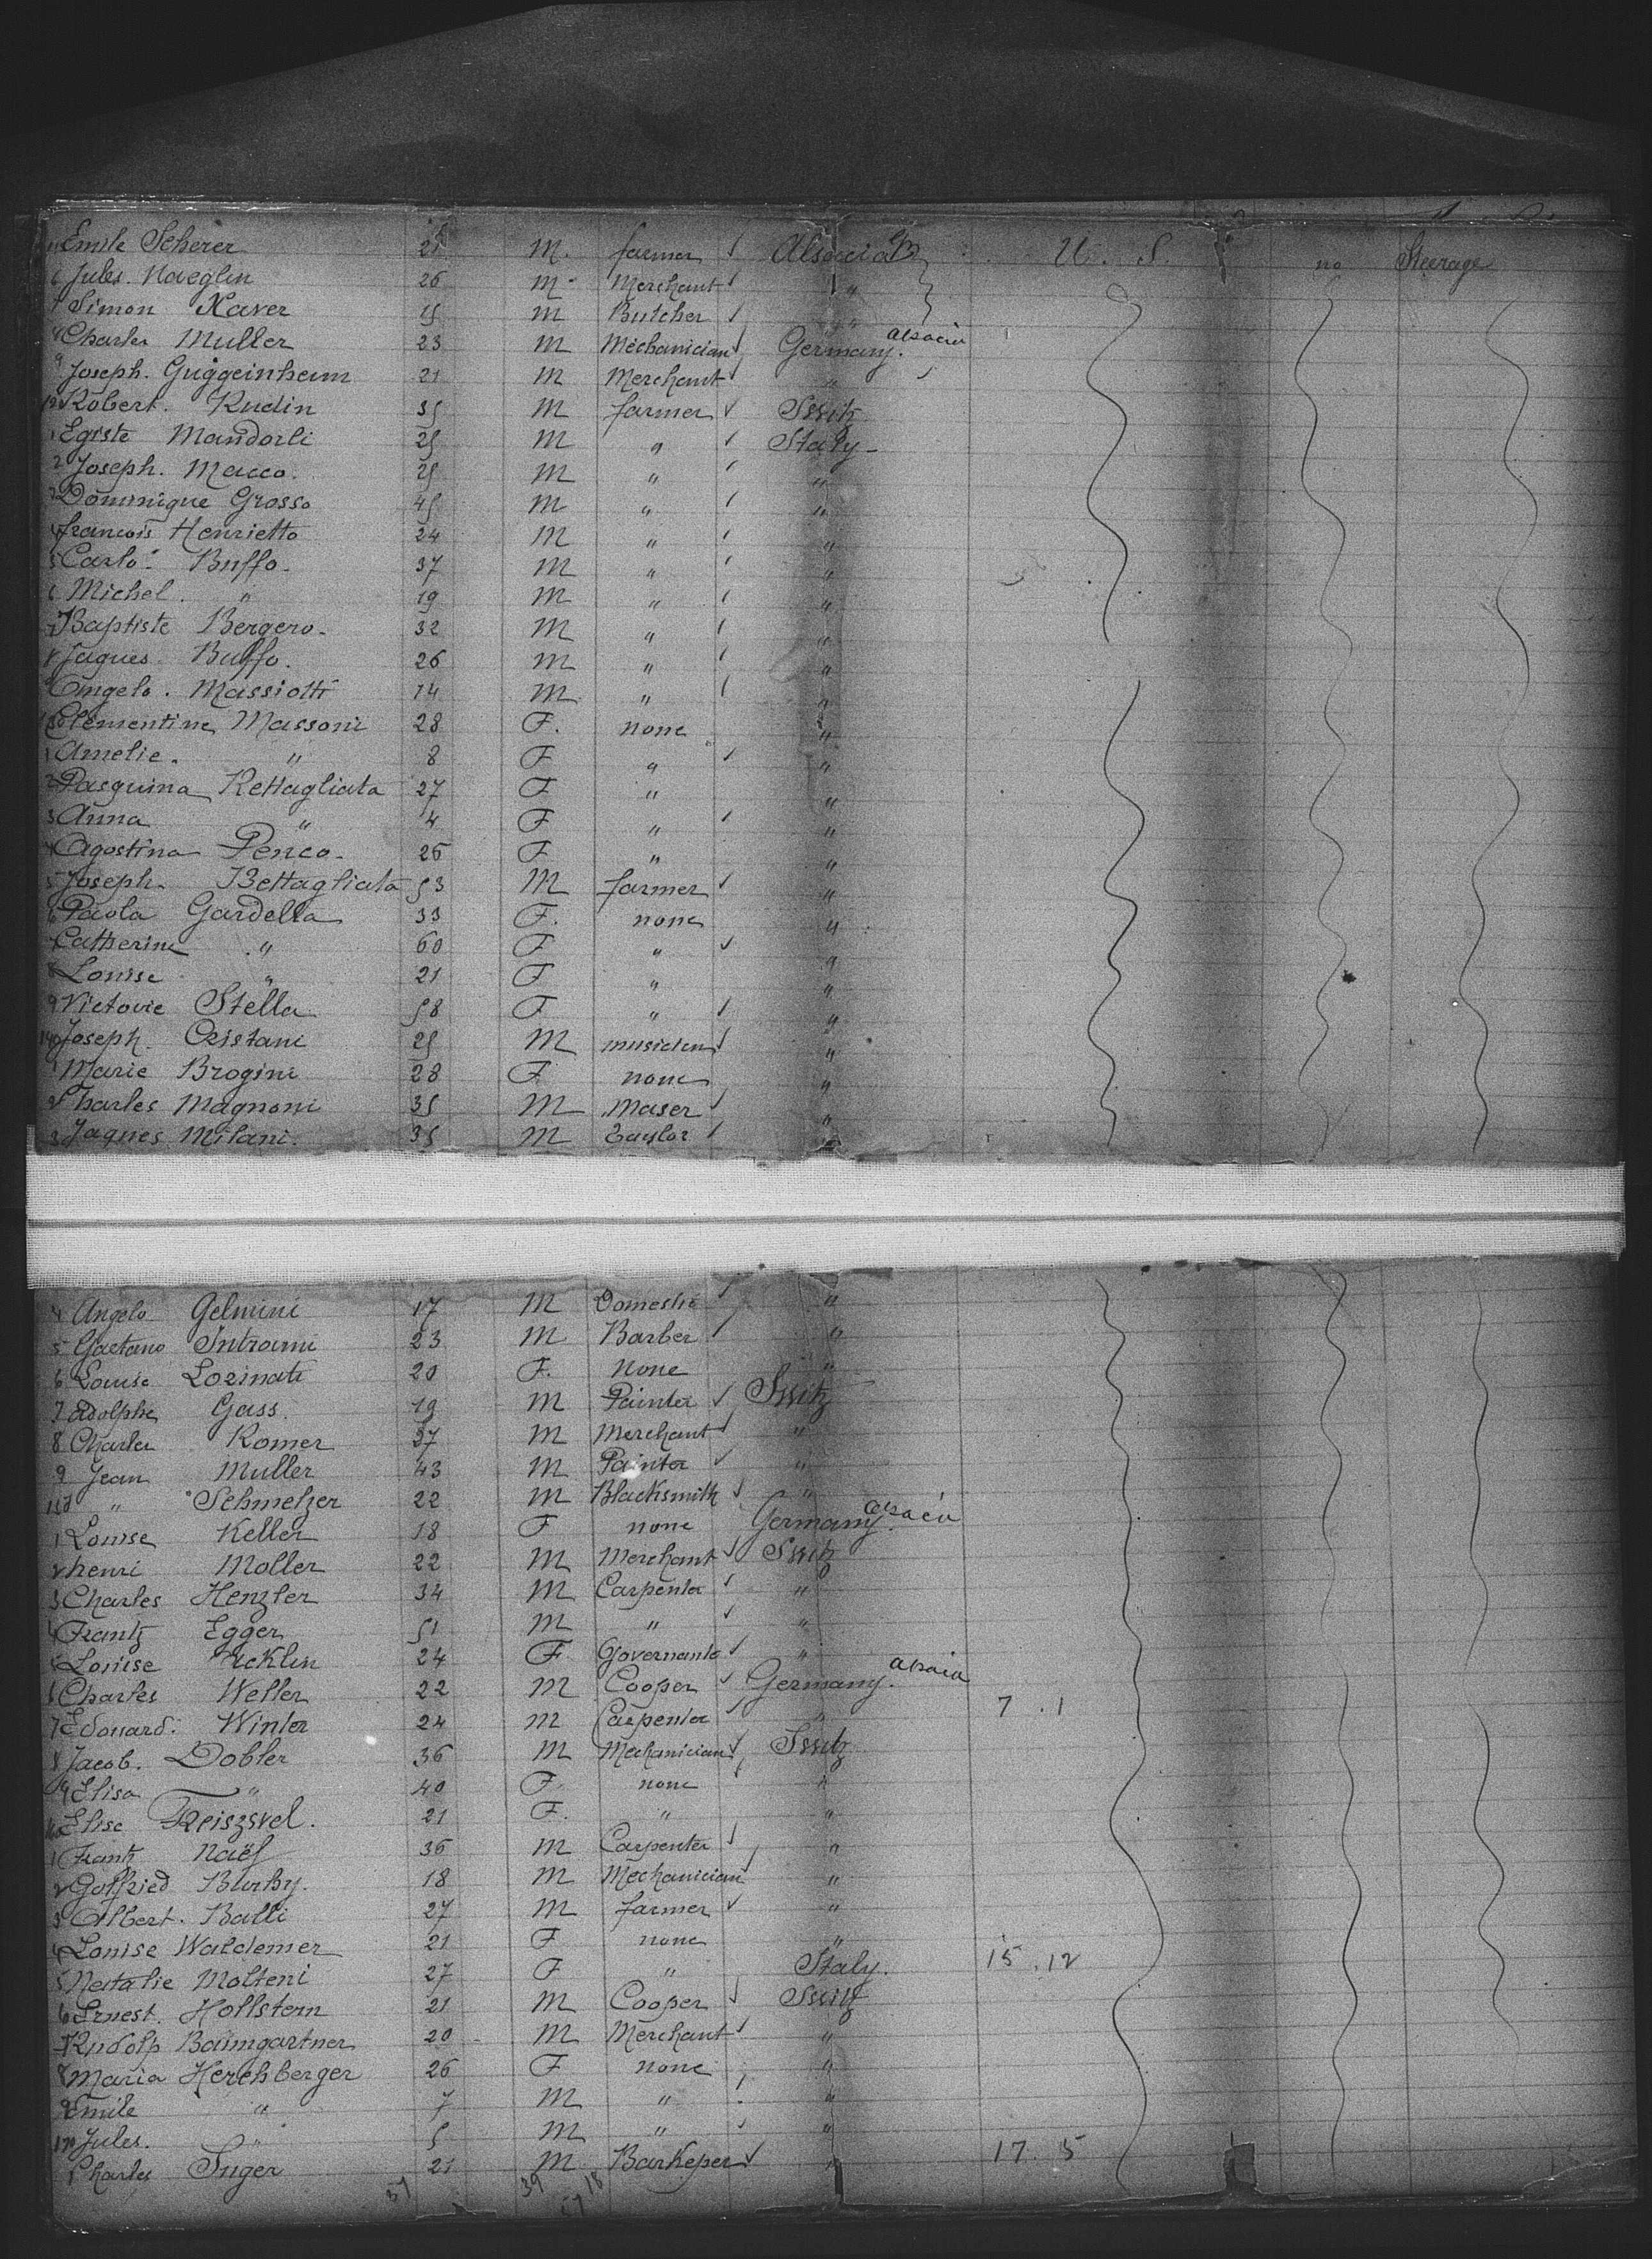 Emile Scherer 25 M. farmer Alsacia U. S. no Steerage
6 Jules. Naeglen 26 M Merchant "
7 Simon Xaver 15 M Butcher "
8 Charles Muller 23 M Méchanician Germany. alsacia
9 Joseph. Guggeinheim 21 M Merchant "
120 Robert. Rudin 35 M farmer Switz
1 Egiste Mandorli 25 M " Italy
2 Joseph. Macco. 25 M " "
3 Dominique Grosso 45 M " "
4 francois Henrietto 24 M " "
5 Carlo Buffo 37 M " "
6 Michel. " 19 M " "
7 Baptiste Bergero 32 M " "
8 Jaques. Buffo. 26 M " "
Angelo. Massiotti 14 M. " "
130 Clementine Massoni 28 F. none "
1 Amelie. " 8 F " "
2 Pasquina Rettagliata 27 F " "
3 Anna " 4 F " "
4 Agostina Penco 26 F " "
5 Joseph. Bettagliata 53 M farmer "
6 Paola Gardella 33 F. none "
7 Catherine " 60 F " "
8 Louise " 21 F " "
9 Victorie Stella 58 F " "
140 Joseph. Cristani 25 M musicien "
1 Marie Brogini 28 F none "
2 Charles Magnoni 35 M Maser "
3 Jaques Milani. 35 M Taylor "
4 Angelo Gelmini 17 M Domestic "
5 Gaetano Introini 23 M Barber "
6 Louise Lozinati 20 F. None "
7 Adolphe Gass. 19 M Painter Switz
8 Charles Romer 37 M Merchant "
9 Jean Muller 43 M Painter "
150 " Schmelzer 22 M Blacksmith "
1 Louise Keller 18 F none Germany. alsacia
2 henri Moller 22 M Merchant Switz
3 Charles Henzler 34 M Carpenter "
4 Frantz Egger 51 M " "
5 Louise Ucklin 24 F. Governante "
6 Charles Weller 22 M Cooper Germany. alsacia
7 Edouard. Winter 24 M Carpenter " 7.1
8 Jacob. Dobler 36 M Mechanician Switz
9 Elisa " 40 F. none "
160 Elise Treiszvel. 21 F. " "
1 Frantz Naëf 36 M Carpenter "
2 Gotfried Burhy. 18 M Mechanician "
3 Albert. Balli 27 M farmer "
4 Louise Waldemer 21 F none "
5 Natalie Molteni 27 F " Italy. 15.12
6 Ernest. Hollstern 21 M Cooper Switz
7 Rudolp Baumgartner 20 M Merchant "
8 Maria Herchberger 26 F none "
9 Emile " 7 M " "
170 Jules. " 5 M " "
1 Charles Suger 21 M Barkeper " 17.5
57 39 18
57